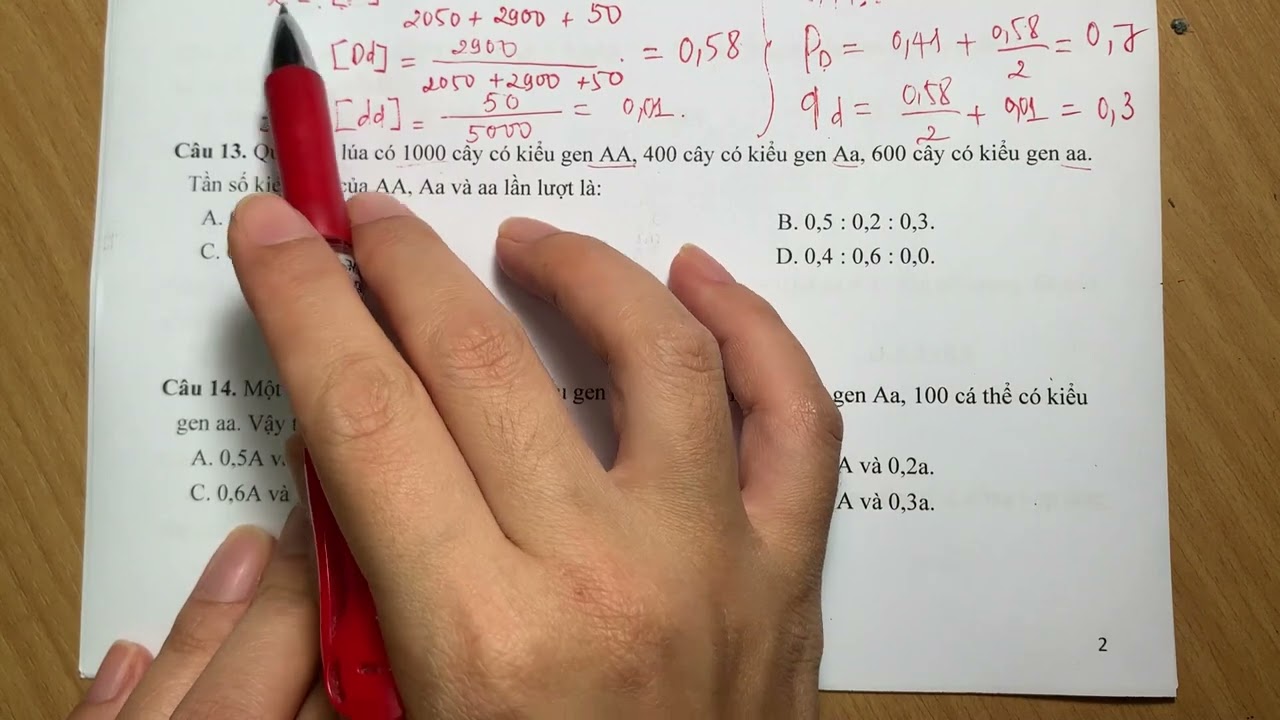 2050 + 2900 + 50
[Dd] = 2900 / 2050 + 2900 + 50 = 0,58
P_D = 0,41 + 0,58 / 2 = 0,7
[dd] = 50 / 5000 = 0,01.
q_d = 0,58 / 2 + 0,01 = 0,3
Câu 13. lúa có 1000 cây có kiểu gen AA, 400 cây có kiểu gen Aa, 600 cây có kiểu gen aa.
Tần số của AA, Aa và aa lần lượt là:
A. B. 0,5 : 0,2 : 0,3.
C. D. 0,4 : 0,6 : 0,0.
Câu 14. Một gen gen Aa, 100 cá thể có kiểu
gen aa. Vậy
A. 0,5A A và 0,2a.
C. 0,6A và A và 0,3a.
2